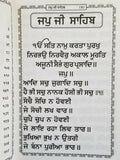 ਜਪੁ ਜੀ ਸਾਹਿਬ
ੴ ਸਤਿ ਨਾਮੁ ਕਰਤਾ ਪੁਰਖੁ
ਨਿਰਭਉ ਨਿਰਵੈਰੁ ਅਕਾਲ ਮੂਰਤਿ
ਅਜੂਨੀ ਸੈਭੰ ਗੁਰ ਪ੍ਰਸਾਦਿ॥
ਜਪੁ॥
ਆਦਿ ਸਚੁ ਜੁਗਾਦਿ ਸਚੁ॥
ਹੈ ਭੀ ਸਚੁ ਨਾਨਕ ਹੋਸੀ ਭੀ ਸਚੁ॥੧॥
ਸੋਚੈ ਸੋਚਿ ਨ ਹੋਵਈ
ਜੇ ਸੋਚੀ ਲਖ ਵਾਰ॥
ਚੁਪੈ ਚੁਪ ਨ ਹੋਵਈ
ਜੇ ਲਾਇ ਰਹਾ ਲਿਵ ਤਾਰ॥
ਭੁਖਿਆ ਭੁਖ ਨ ਉਤਰੀ
ਜੇ ਬੰਨਾ ਪੁਰੀਆ ਭਾਰ॥